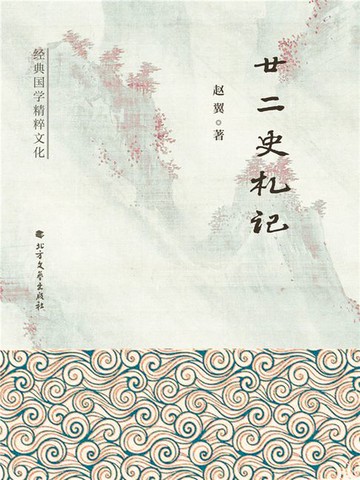 廿二史札记
赵翼◎著
经典国学精粹文化
北方文艺出版社